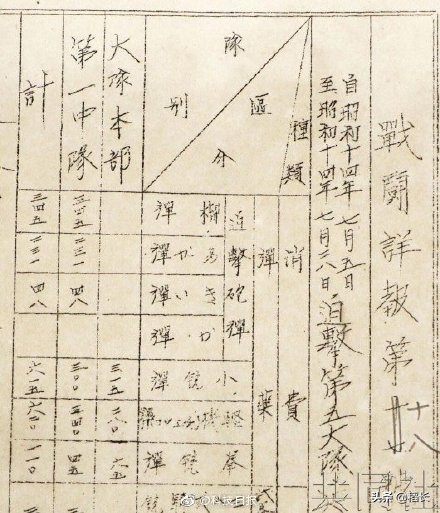 戰鬪詳報第
自昭和十四年七月五日
至昭和十四年七月二八日
迫擊第五大隊
種類
隊
區
分
別
消費
彈藥
迫擊砲彈
榴彈
あか彈
きい彈
彈
小銃彈
拳銃彈
大隊本部
三一五
六五
第一中隊
三四五
二三一
四八
三〇〇
四五
計
三四五
二三一
四八
六一五
一一〇
@科技日报
头条@稻长